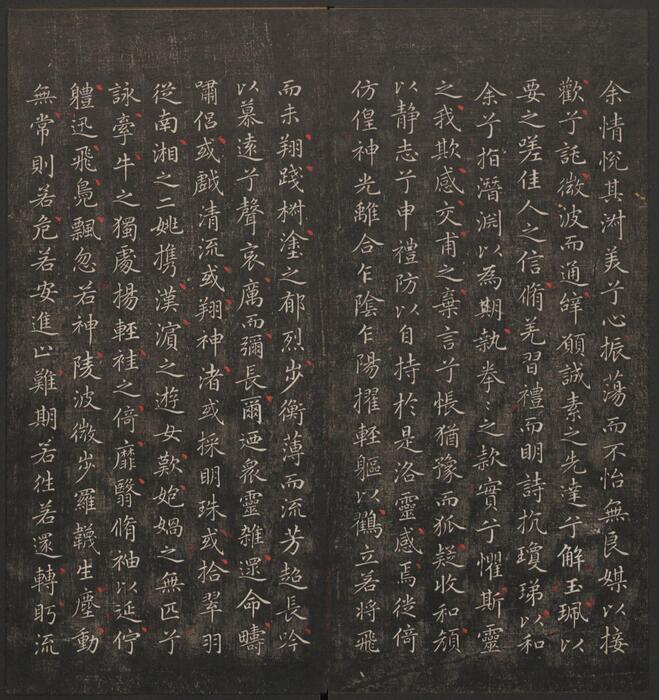 余情悅其淑美兮心振蕩而不怡無良媒以接
歡兮託微波而通辭願誠素之先達兮解玉珮以
要之嗟佳人之信脩羌習禮而明詩抗瓊珶以和
余兮指潛淵以為期執拳〻之款實兮懼斯靈
之我欺感交甫之棄言兮悵猶豫而狐疑收和顏
以静志兮申禮防以自持於是洛靈感焉徙倚
仿偟神光離合乍陰乍陽擢輕軀以鶴立若將飛
而未翔踐椒塗之郁烈步衡薄而流芳超長吟
以慕遠兮聲哀厲而彌長爾迺衆靈雜還命疇
嘯侶或戲清流或翔神渚或採明珠或拾翠羽
從南湘之二姚攜漢濱之遊女歎匏媧之無匹兮
詠牽牛之獨處揚輕袿之倚靡翳脩袖以延佇
軆迅飛鳧飄忽若神陵波微步羅韈生塵動
無常則若危若安進止難期若往若還轉眄流